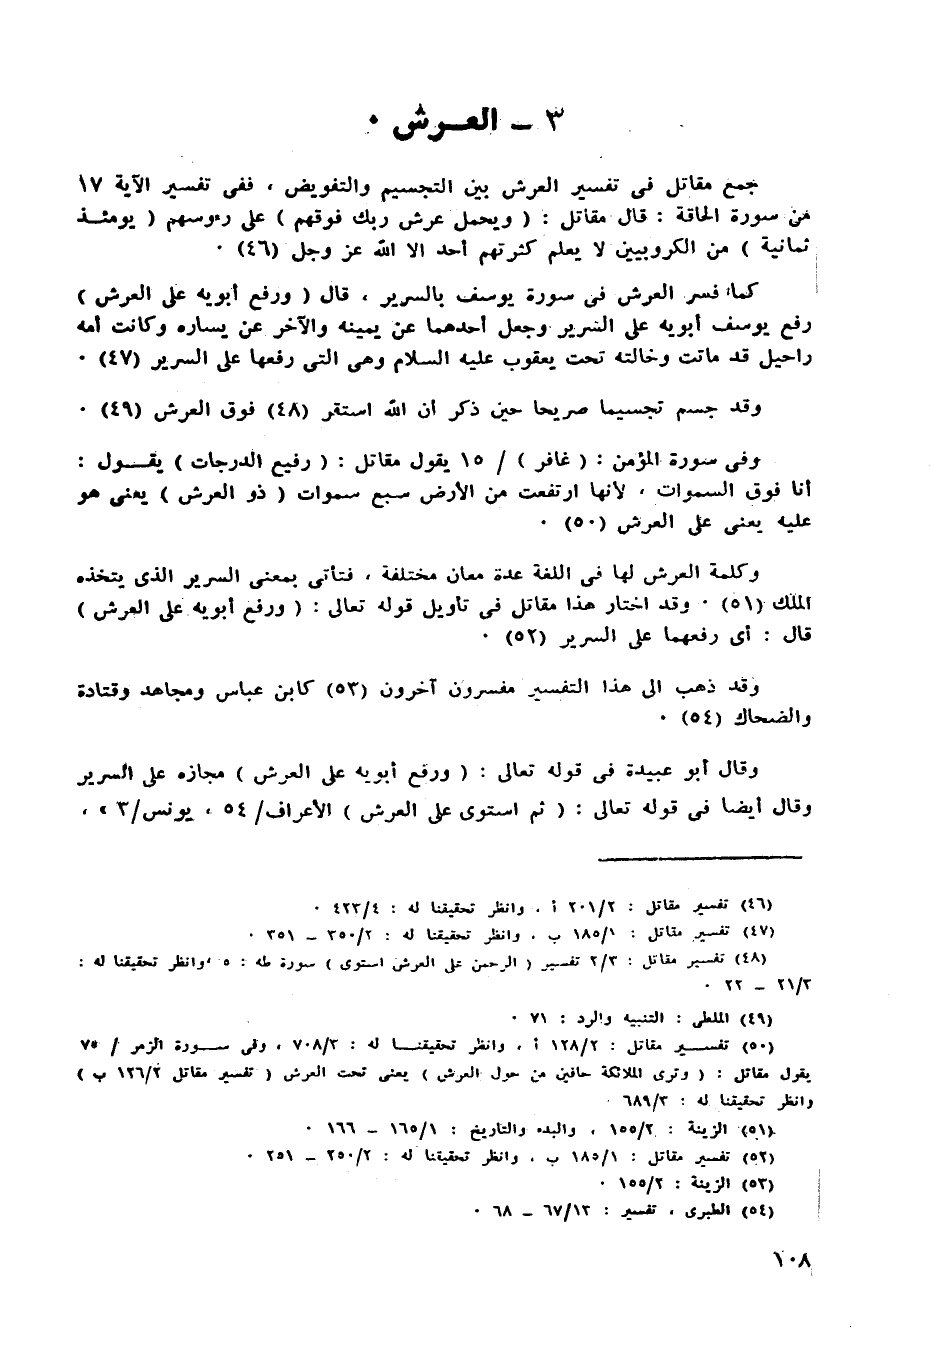 ٣ ــ العــرش ٠
جمع مقاتل فى تفسير العرش بين التجسيم والتفويض ، ففى تفسير الآية ١٧
من سورة الحاقة : قال مقاتل : ( ويحمل عرش ربك فوقهم ) على رءوسهم ( يومئــذ
ثمانية ) من الكروبيين لا يعلم كثرتهم أحد الا الله عز وجل (٤٦) ٠
كما فسر العرش فى سورة يوسف بالسرير ، قال ( ورفع أبويه على العرش )
رفع يوسف أبويه على السرير وجعل أحدهما عن يمينه والآخر عن يساره وكانت أمه
راحيل قد ماتت وخالته تحت يعقوب عليه السلام وهى التى رفعها على السرير (٤٧) ٠
وقد جسم تجسيما صريحا حين ذكر أن الله استقر (٤٨) فوق العرش (٤٩) ٠
وفى سورة المؤمن : ( غافر ) / ١٥ يقول مقاتل : ( رفيع الدرجات ) يقــول :
أنا فوق السموات ، لأنها ارتفعت من الأرض سبع سموات ( ذو العرش ) يعنى هو
عليه يعنى على العرش (٥٠) ٠
وكلمة العرش لها فى اللغة عدة معان مختلفة ، فتأتى بمعنى السرير الذى يتخذه
الملك (٥١) ٠ وقد اختار هذا مقاتل فى تأويل قوله تعالى : ( ورفع أبويه على العرش )
قال : أى رفعهما على السرير (٥٢) ٠
وقد ذهب الى هذا التفسير مفسرون آخرون (٥٣) كابن عباس ومجاهد وقتادة
والضحاك (٥٤) ٠
وقال أبو عبيدة فى قوله تعالى : ( ورفع أبويه على العرش ) مجازه على السرير
وقال أيضا فى قوله تعالى : ( ثم استوى على العرش ) الأعراف/ ٥٤ ، يونس/٣ » ،
(٤٦) تفسير مقاتل : ٢٠١/٢ أ ، وانظر تحقيقنا له : ٤٢٣/٤ ٠
(٤٧) تفسير مقاتل : ١٨٥/١ ب ، وانظر تحقيقنا له : ٣٥٠/٢ ــ ٣٥١ ٠
(٤٨) تفسير مقاتل : ٢/٣ تفسير ( الرحمن على العرش استوى ) سورة طه : ٥ ، وانظر تحقيقنا له :
٢١/٣ ــ ٢٢ ٠
(٤٩) الملطى : التنبيه والرد : ٧١ ٠
(٥٠) تفســير مقاتل : ١٢٨/٢ أ ، وانظر تحقيقنــا له : ٧٠٨/٣ ، وفى ســورة الزمر / ٧٥
يقول مقاتل : ( وترى الملائكة حافين من حول العرش ) يعنى تحت العرش ( تفسير مقاتل ١٢٦/٢ ب )
وانظر تحقيقنا له : ٦٨٩/٣ ٠
(٥١) الزينة : ١٥٥/٢ ، والبدء والتاريخ : ١٦٥/١ ــ ١٦٦ ٠
(٥٢) تفسير مقاتل : ١٨٥/١ ب ، وانظر تحقيقنا له : ٢٥٠/٢ ــ ٢٥١ ٠
(٥٣) الزينة : ١٥٥/٢ ٠
(٥٤) الطبرى ، تفسير : ٦٧/١٣ ــ ٦٨ ٠
١٠٨